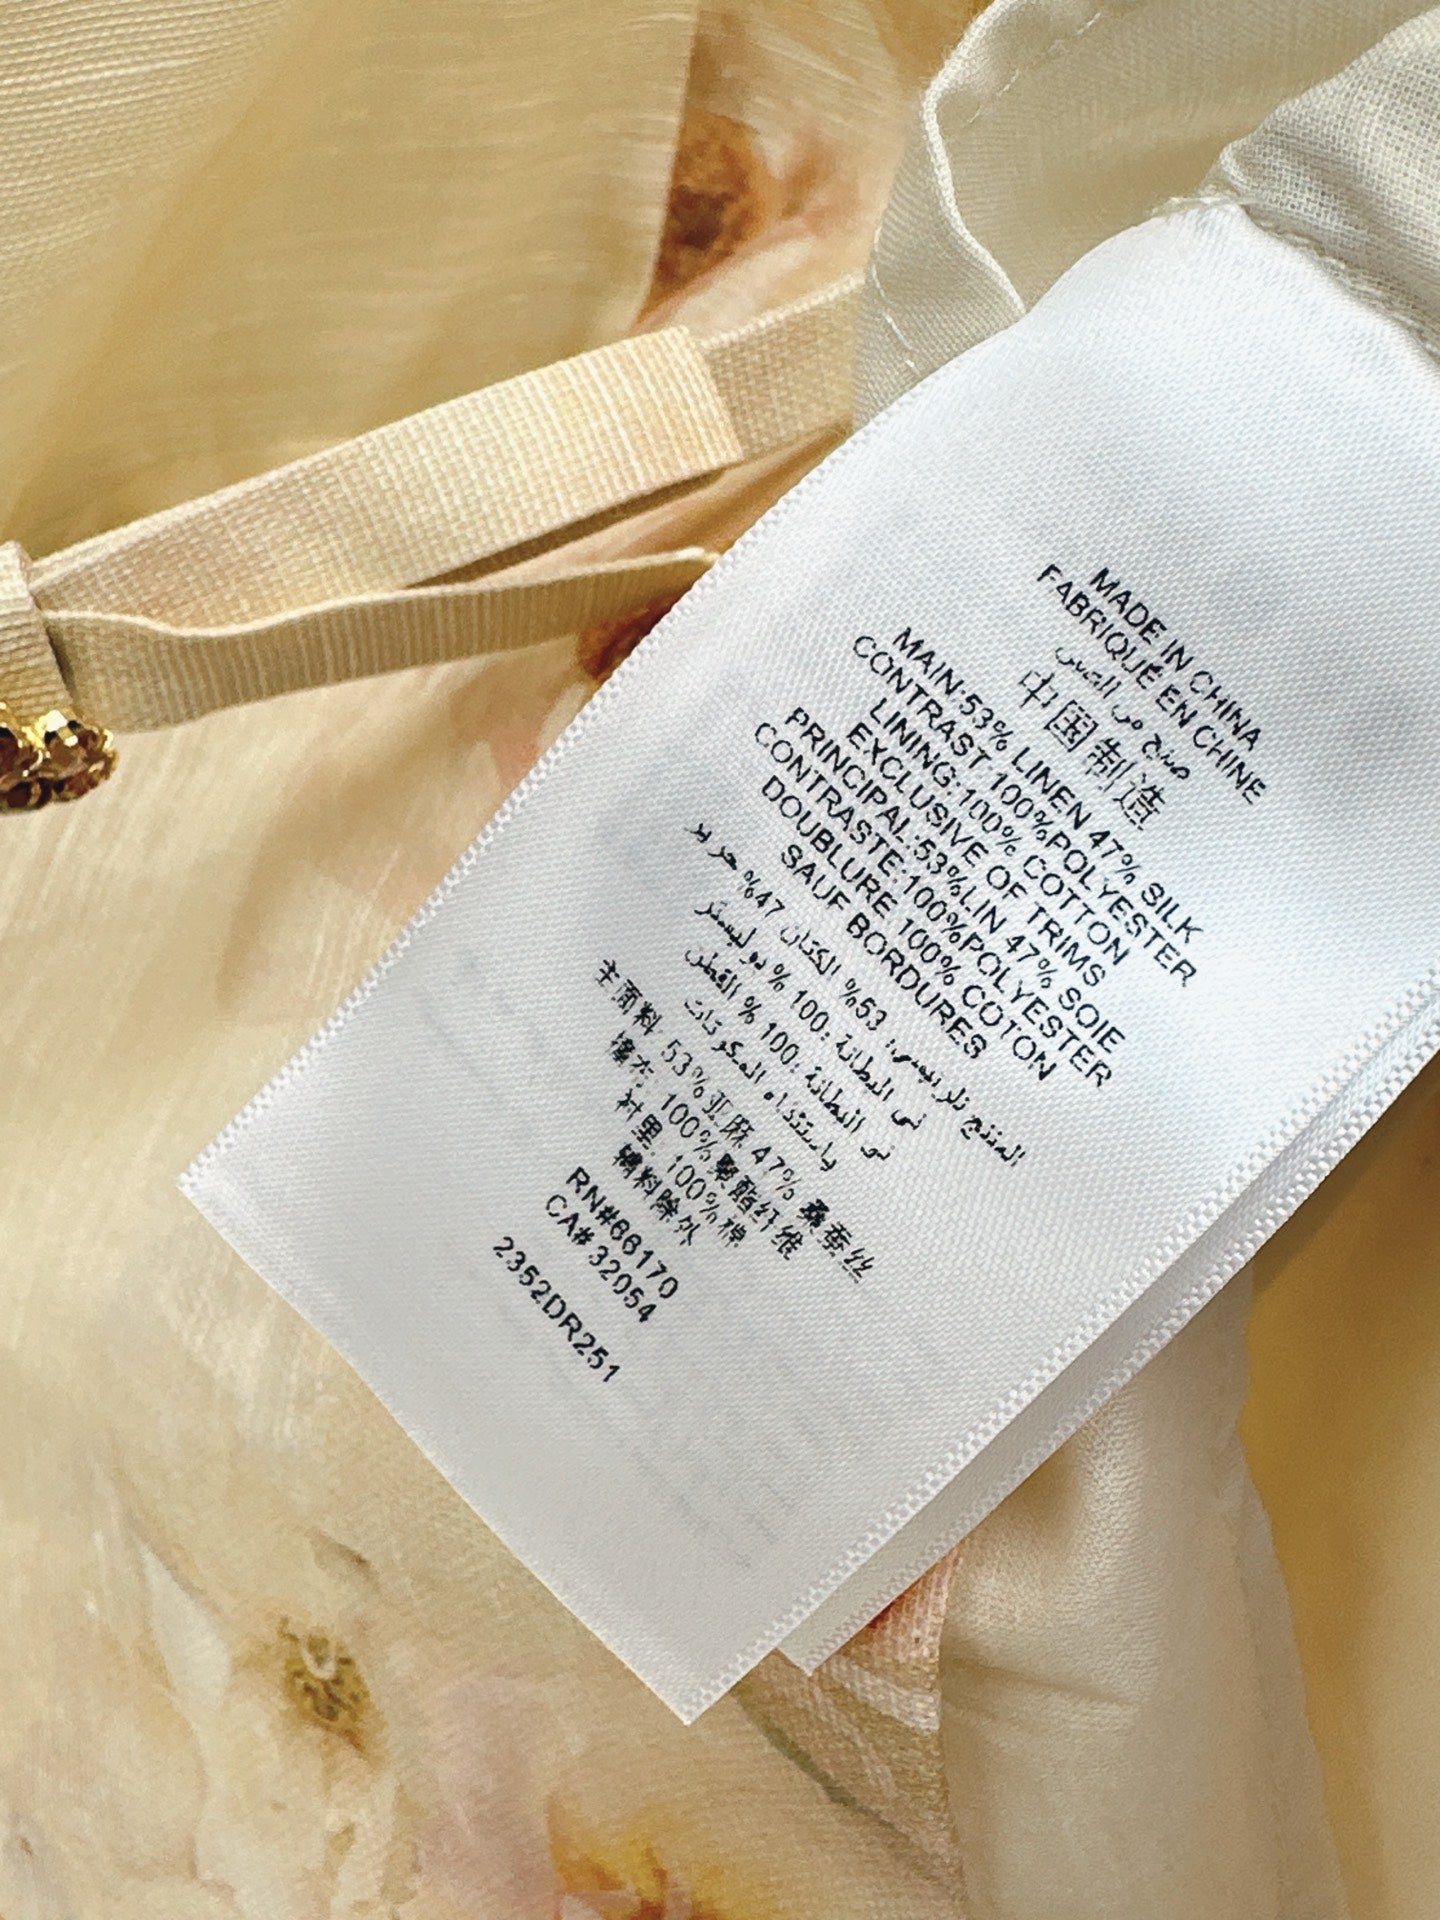 MADE IN CHINA
FABRIQUÉ EN CHINE
صنع في الصين
中国制造
MAIN:53% LINEN 47% SILK
CONTRAST 100%POLYESTER
LINING:100% COTTON
EXCLUSIVE OF TRIMS
PRINCIPAL:53%LIN 47% SOIE
CONTRASTE:100%POLYESTER
DOUBLURE 100% COTON
SAUF BORDURES
53% الكتان 47% حرير
في البطانة: 100 %
في البطانة: 100 % القطن
باستثناء المكونات
主面料 53%亚麻 47% 桑蚕丝
撞布: 100%聚酯纤维
衬里 100%棉
辅料除外
RN#66170
CA# 32054
2352DR251